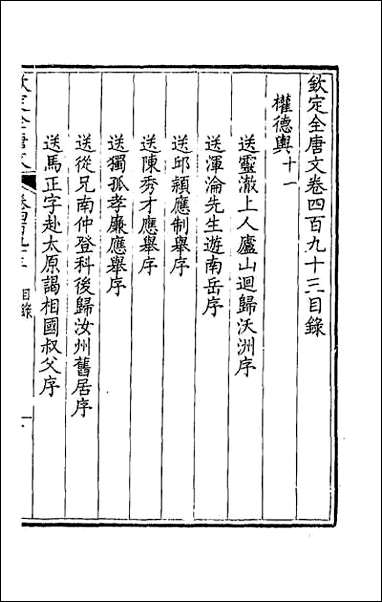 欽定全唐文卷四百九十三目錄
權德輿十一
送靈澈上人廬山迴歸沃洲序
送渾淪先生遊南岳序
送邱穎應制舉序
送陳秀才應舉序
送獨孤孝廉應舉序
送從兄南仲登科後歸汝州舊居序
送馬正字赴太原謁相國叔父序
目錄
一